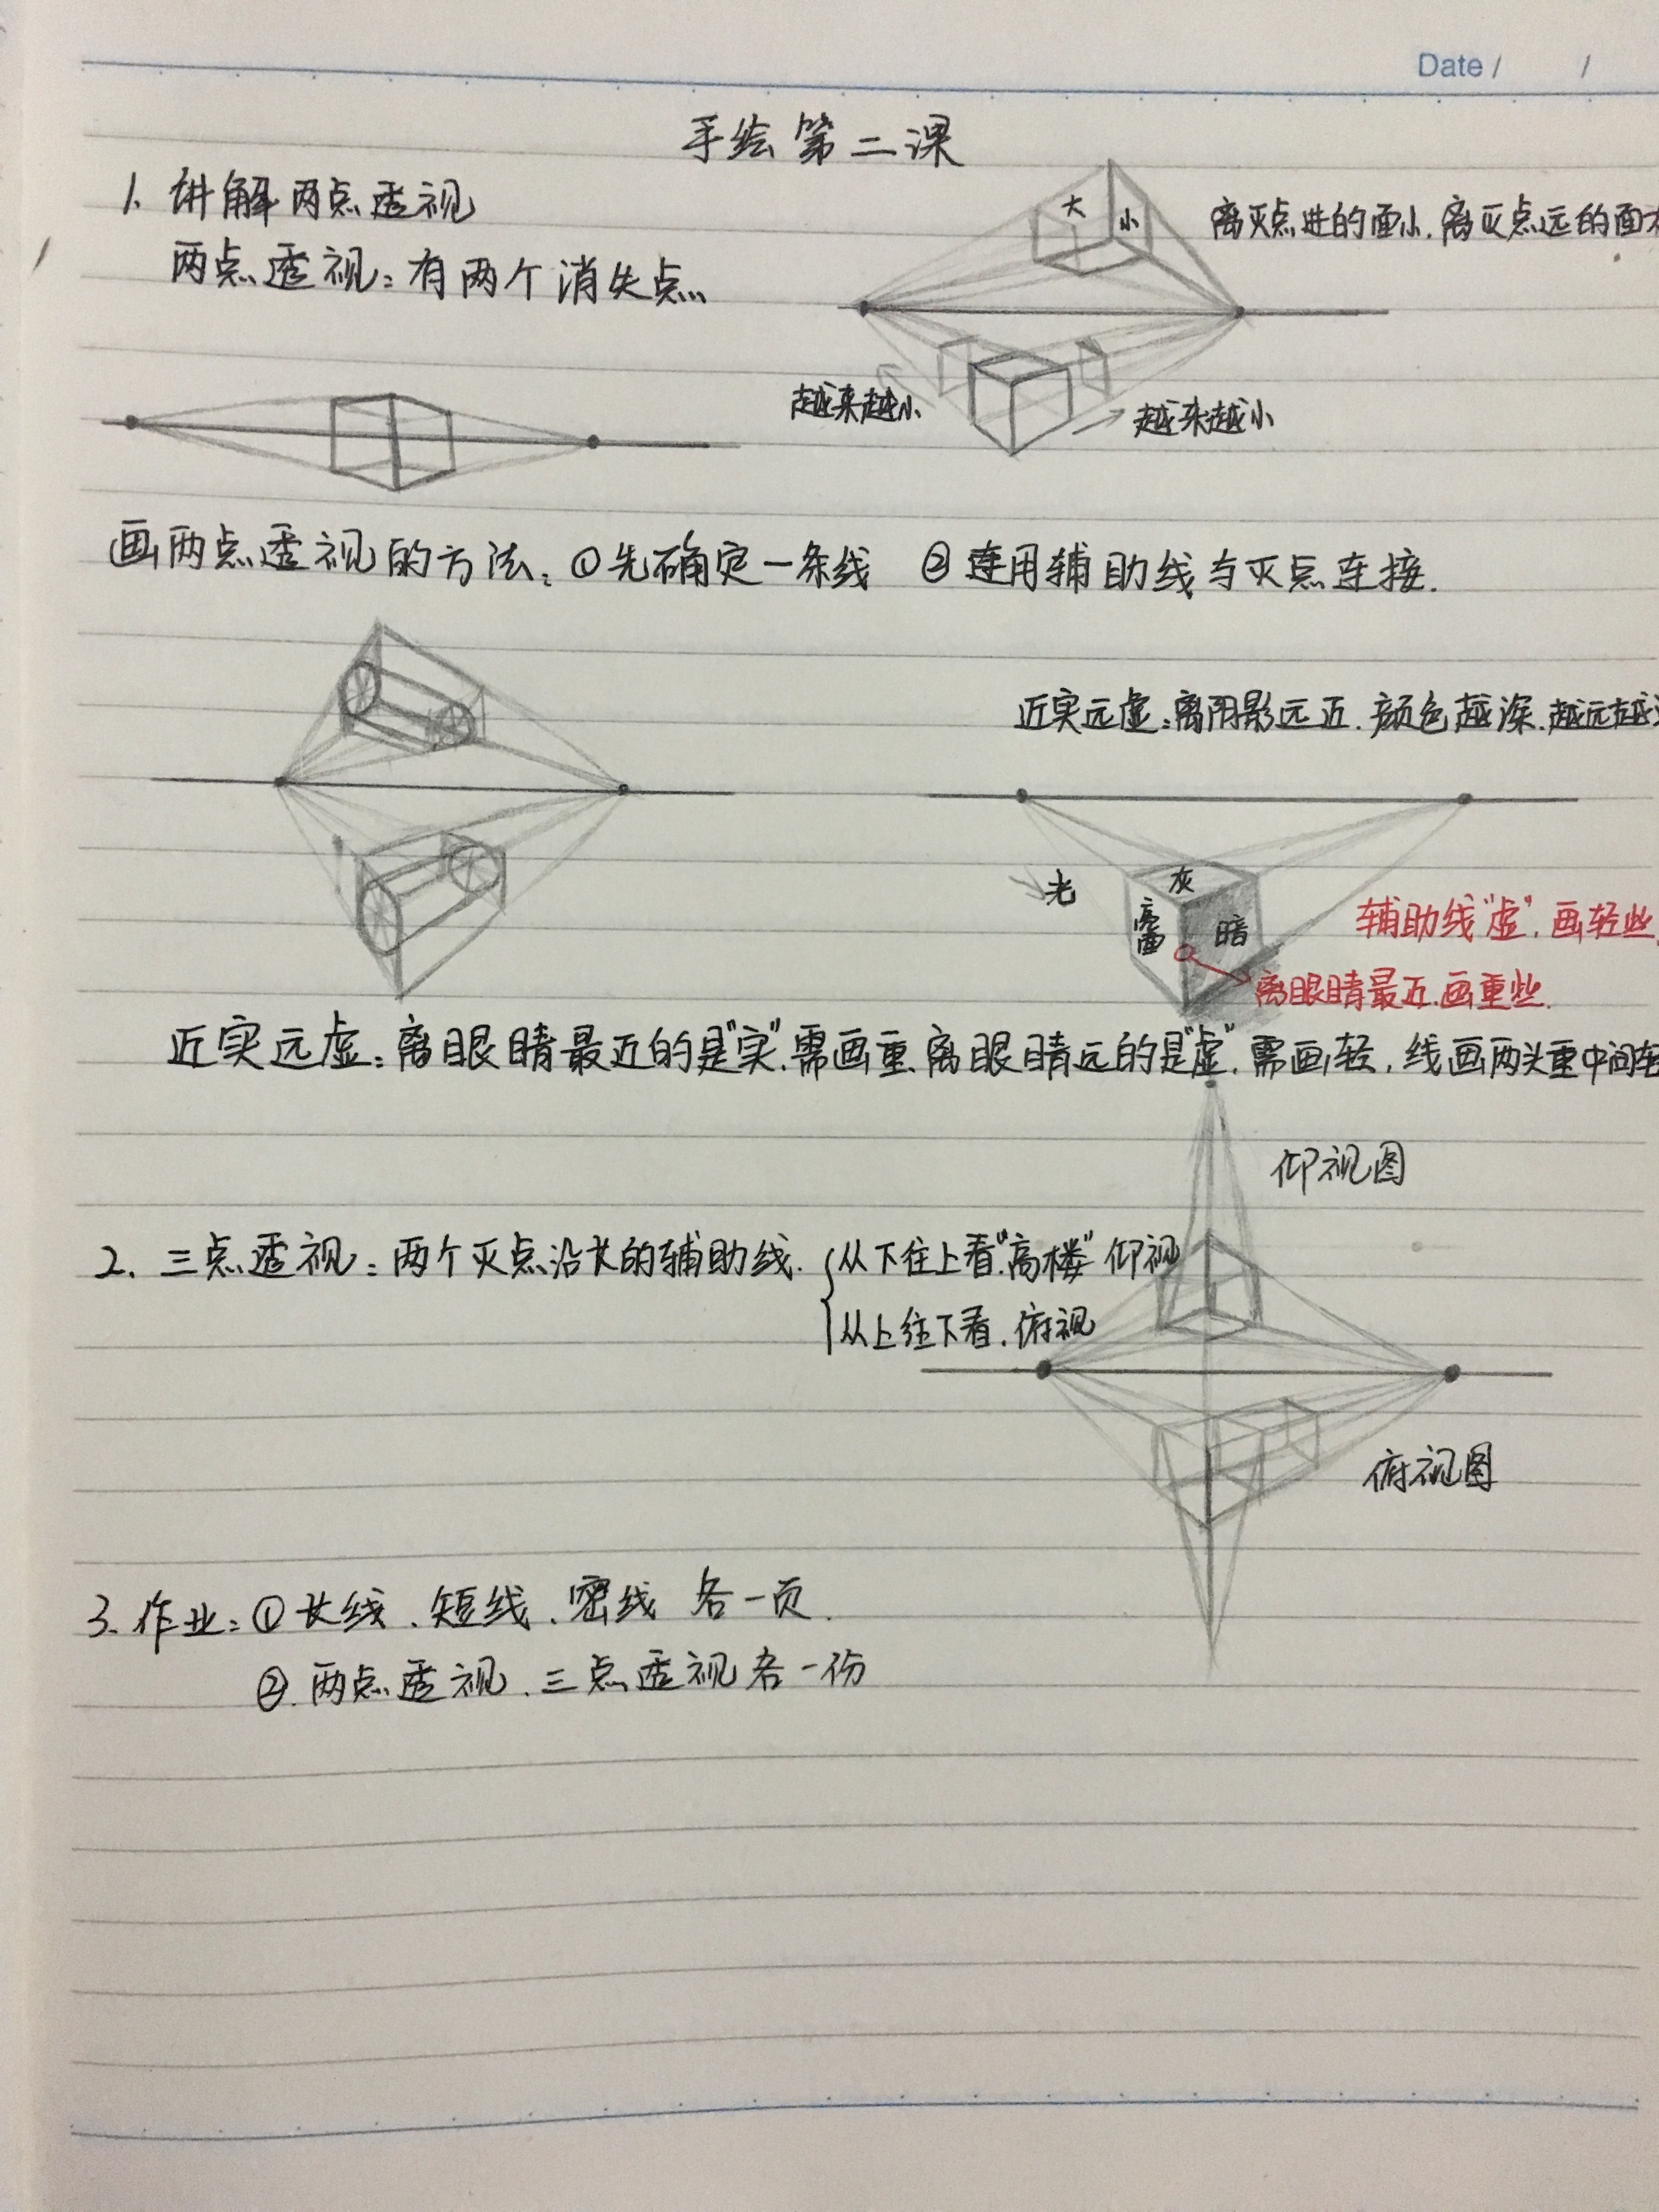 Date /      /
手绘第二课
1. 讲解两点透视
两点透视：有两个消失点
大
小
离灭点进的面小.离灭点远的面
越来越小
越来越小
画两点透视的方法：①先确定一条线 ② 连用辅助线与灭点连接.
近实远虚：离阴影远近.颜色越深.越远越
光
灰
亮面
暗
辅助线"虚".画轻些
离眼睛最近.画重些.
近实远虚：离眼睛最近的是"实".需画重.离眼睛远的是"虚".需画轻，线画两头重中间轻
仰视图
2. 三点透视：两个灭点沿长的辅助线.
从下往上看"高楼"仰视
从上往下看.俯视
俯视图
3. 作业：①长线、短线、密线 各一页.
②.两点透视、三点透视各一份